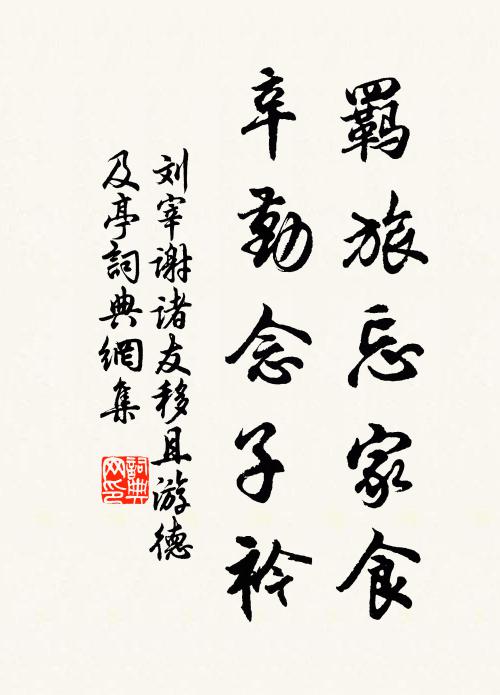 羈旅忘家食
辛勤念子衿
刘宰谢诸友移且游德
及亭詞典網集
詞典
网印